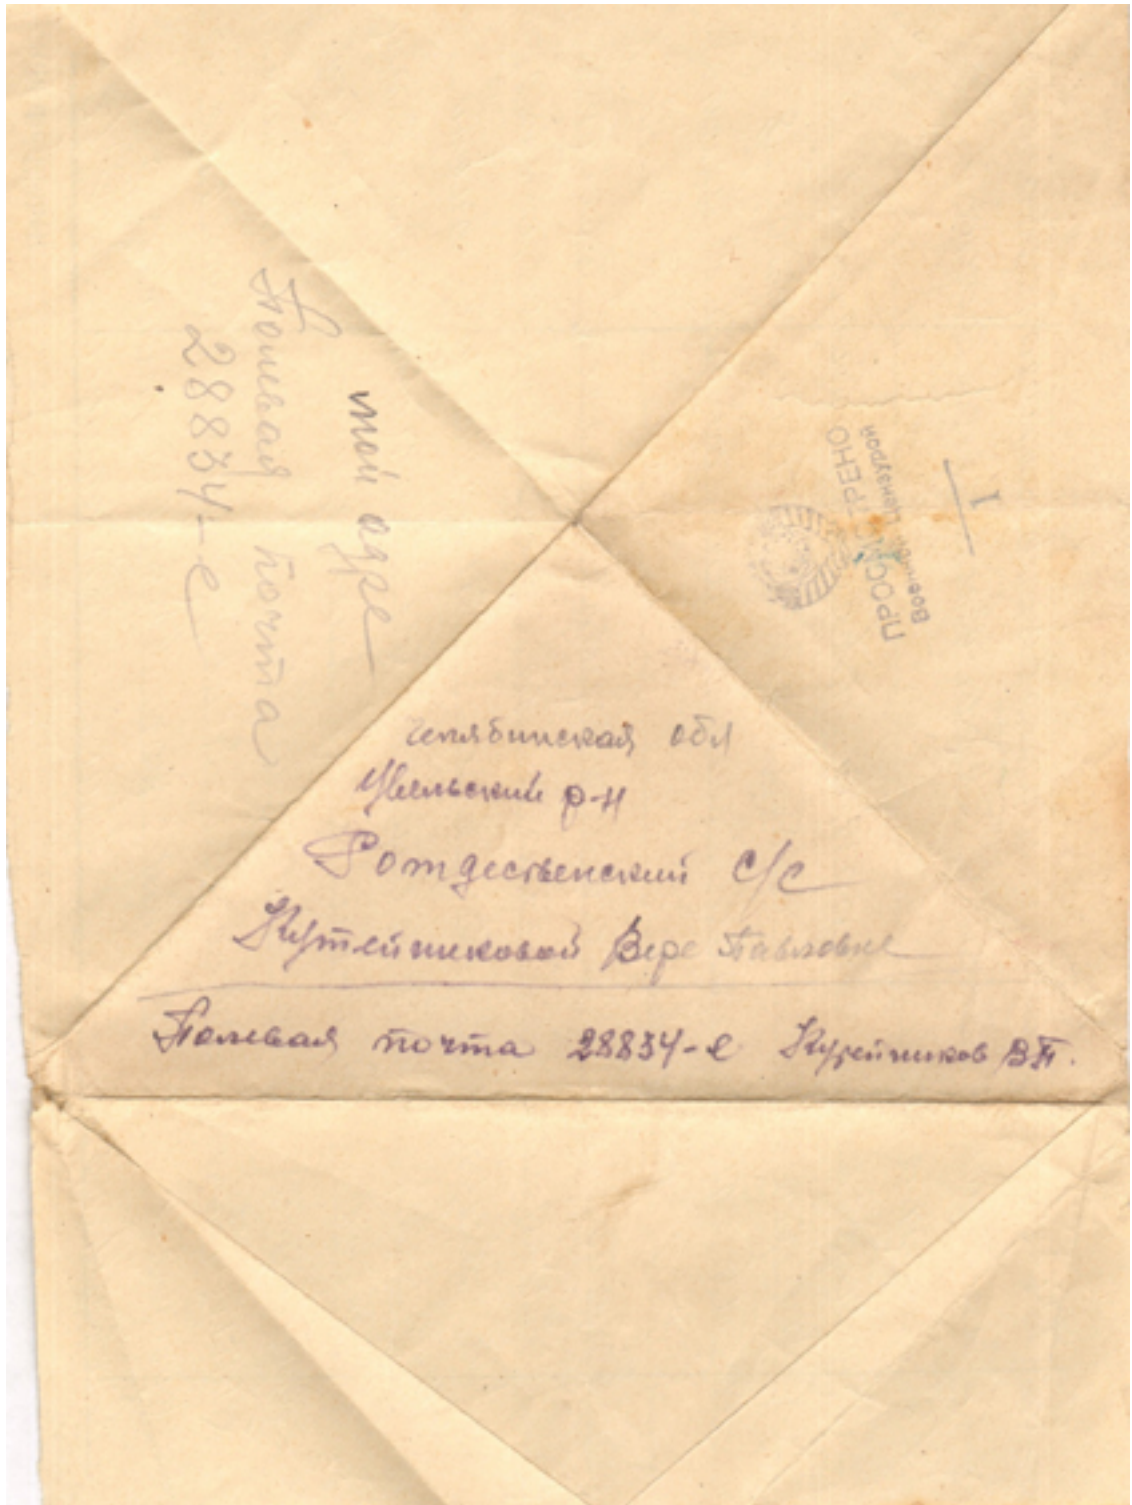 мой адре
Полевая почта
28834-е
I
ПРОСМОТРЕНО
Военной Цензурой
челябинская обл
Увельский р-н
Рождественский с/с
Кутейниковой Вере Павловне
Полевая почта 28834-е Кутейников В.П.